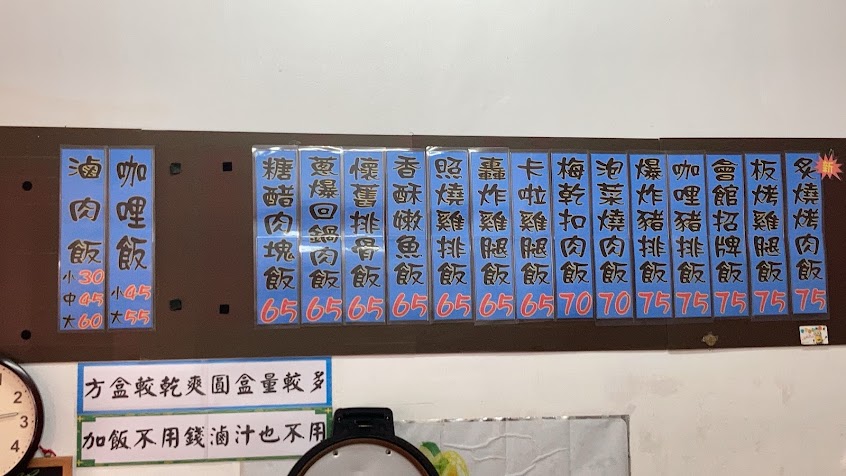 滷肉飯
小30
中45
大60
咖哩飯
小45
大55
糖醋肉塊飯65
蔥爆回鍋肉飯65
懷舊排骨飯65
香酥嫩魚飯65
照燒雞排飯65
轟炸雞腿飯65
卡啦雞腿飯65
梅乾扣肉飯70
泡菜燒肉飯70
爆炸豬排飯75
咖哩豬排飯75
會館招牌飯75
板烤雞腿飯75
炙燒烤肉飯75
新
方盒較乾爽圓盒量較多
加飯不用錢滷汁也不用
2
3
4